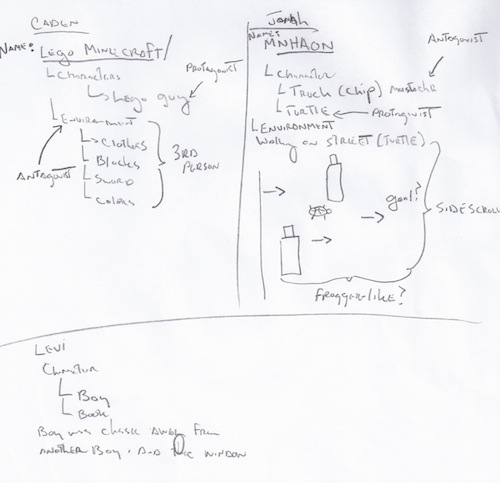 CADEN
NAME: LEGO MINECRAFT/
CHARACTERS
LEGO guy
PROTAGONIST
ENVIRONMENT
CLOTHES
BLOCKS
SWORD
COLORS
ANTAGONIST
3RD PERSON
JONAH
NAME: MNHAON
CHARACTER
TRUCK (CHIP) MUSTACHE
ANTAGONIST
TURTLE
PROTAGONIST
ENVIRONMENT
WALKING ON STREET (TURTLE)
goal?
SIDESCROLL
FROGGER-LIKE?
LEVI
CHARACTER
BOY
BOOK
BOY WAS CHASE AWAY FROM
ANOTHER BOY. AND THE WINDOW